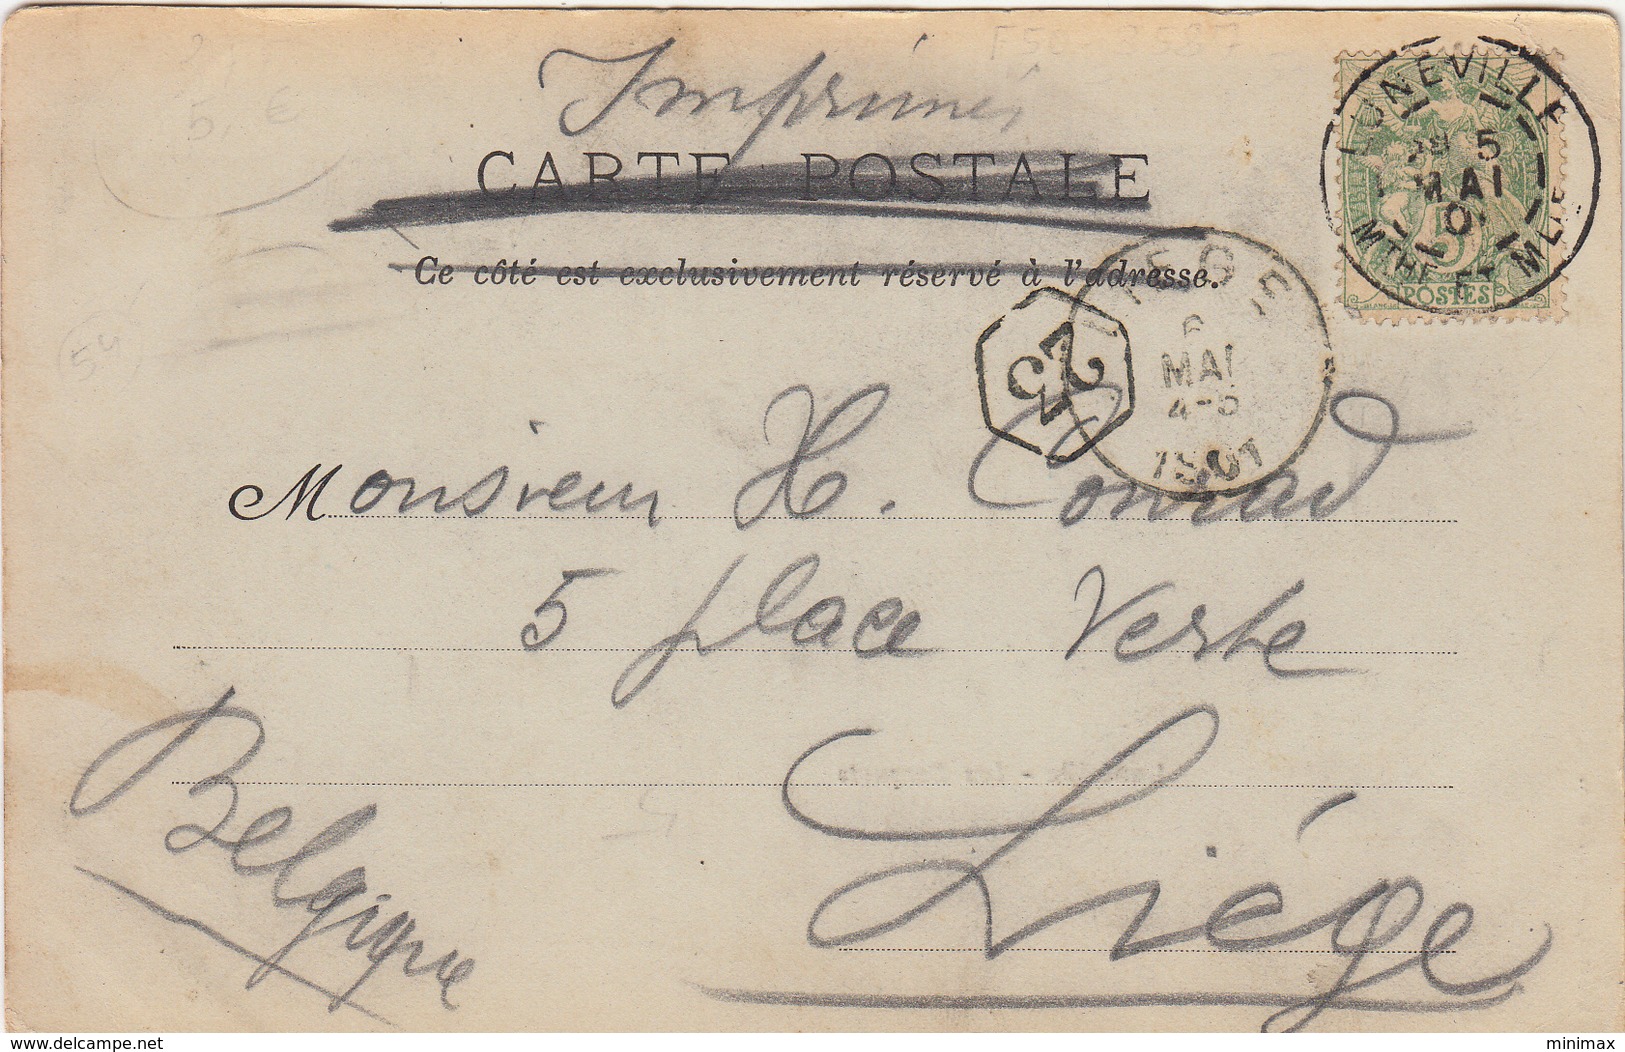 Imprimés
CARTE POSTALE
Ce côté est exclusivement réservé à l'adresse.
LUNEVILLE
5
MAI
01
MTHE ET MLLE
5
POSTES
LIEGE
6
MAI
4-5
1901
Monsieur H. Conrad
5 place Verte
Liége
Belgique
54
5, €
www.delcampe.net
minimax